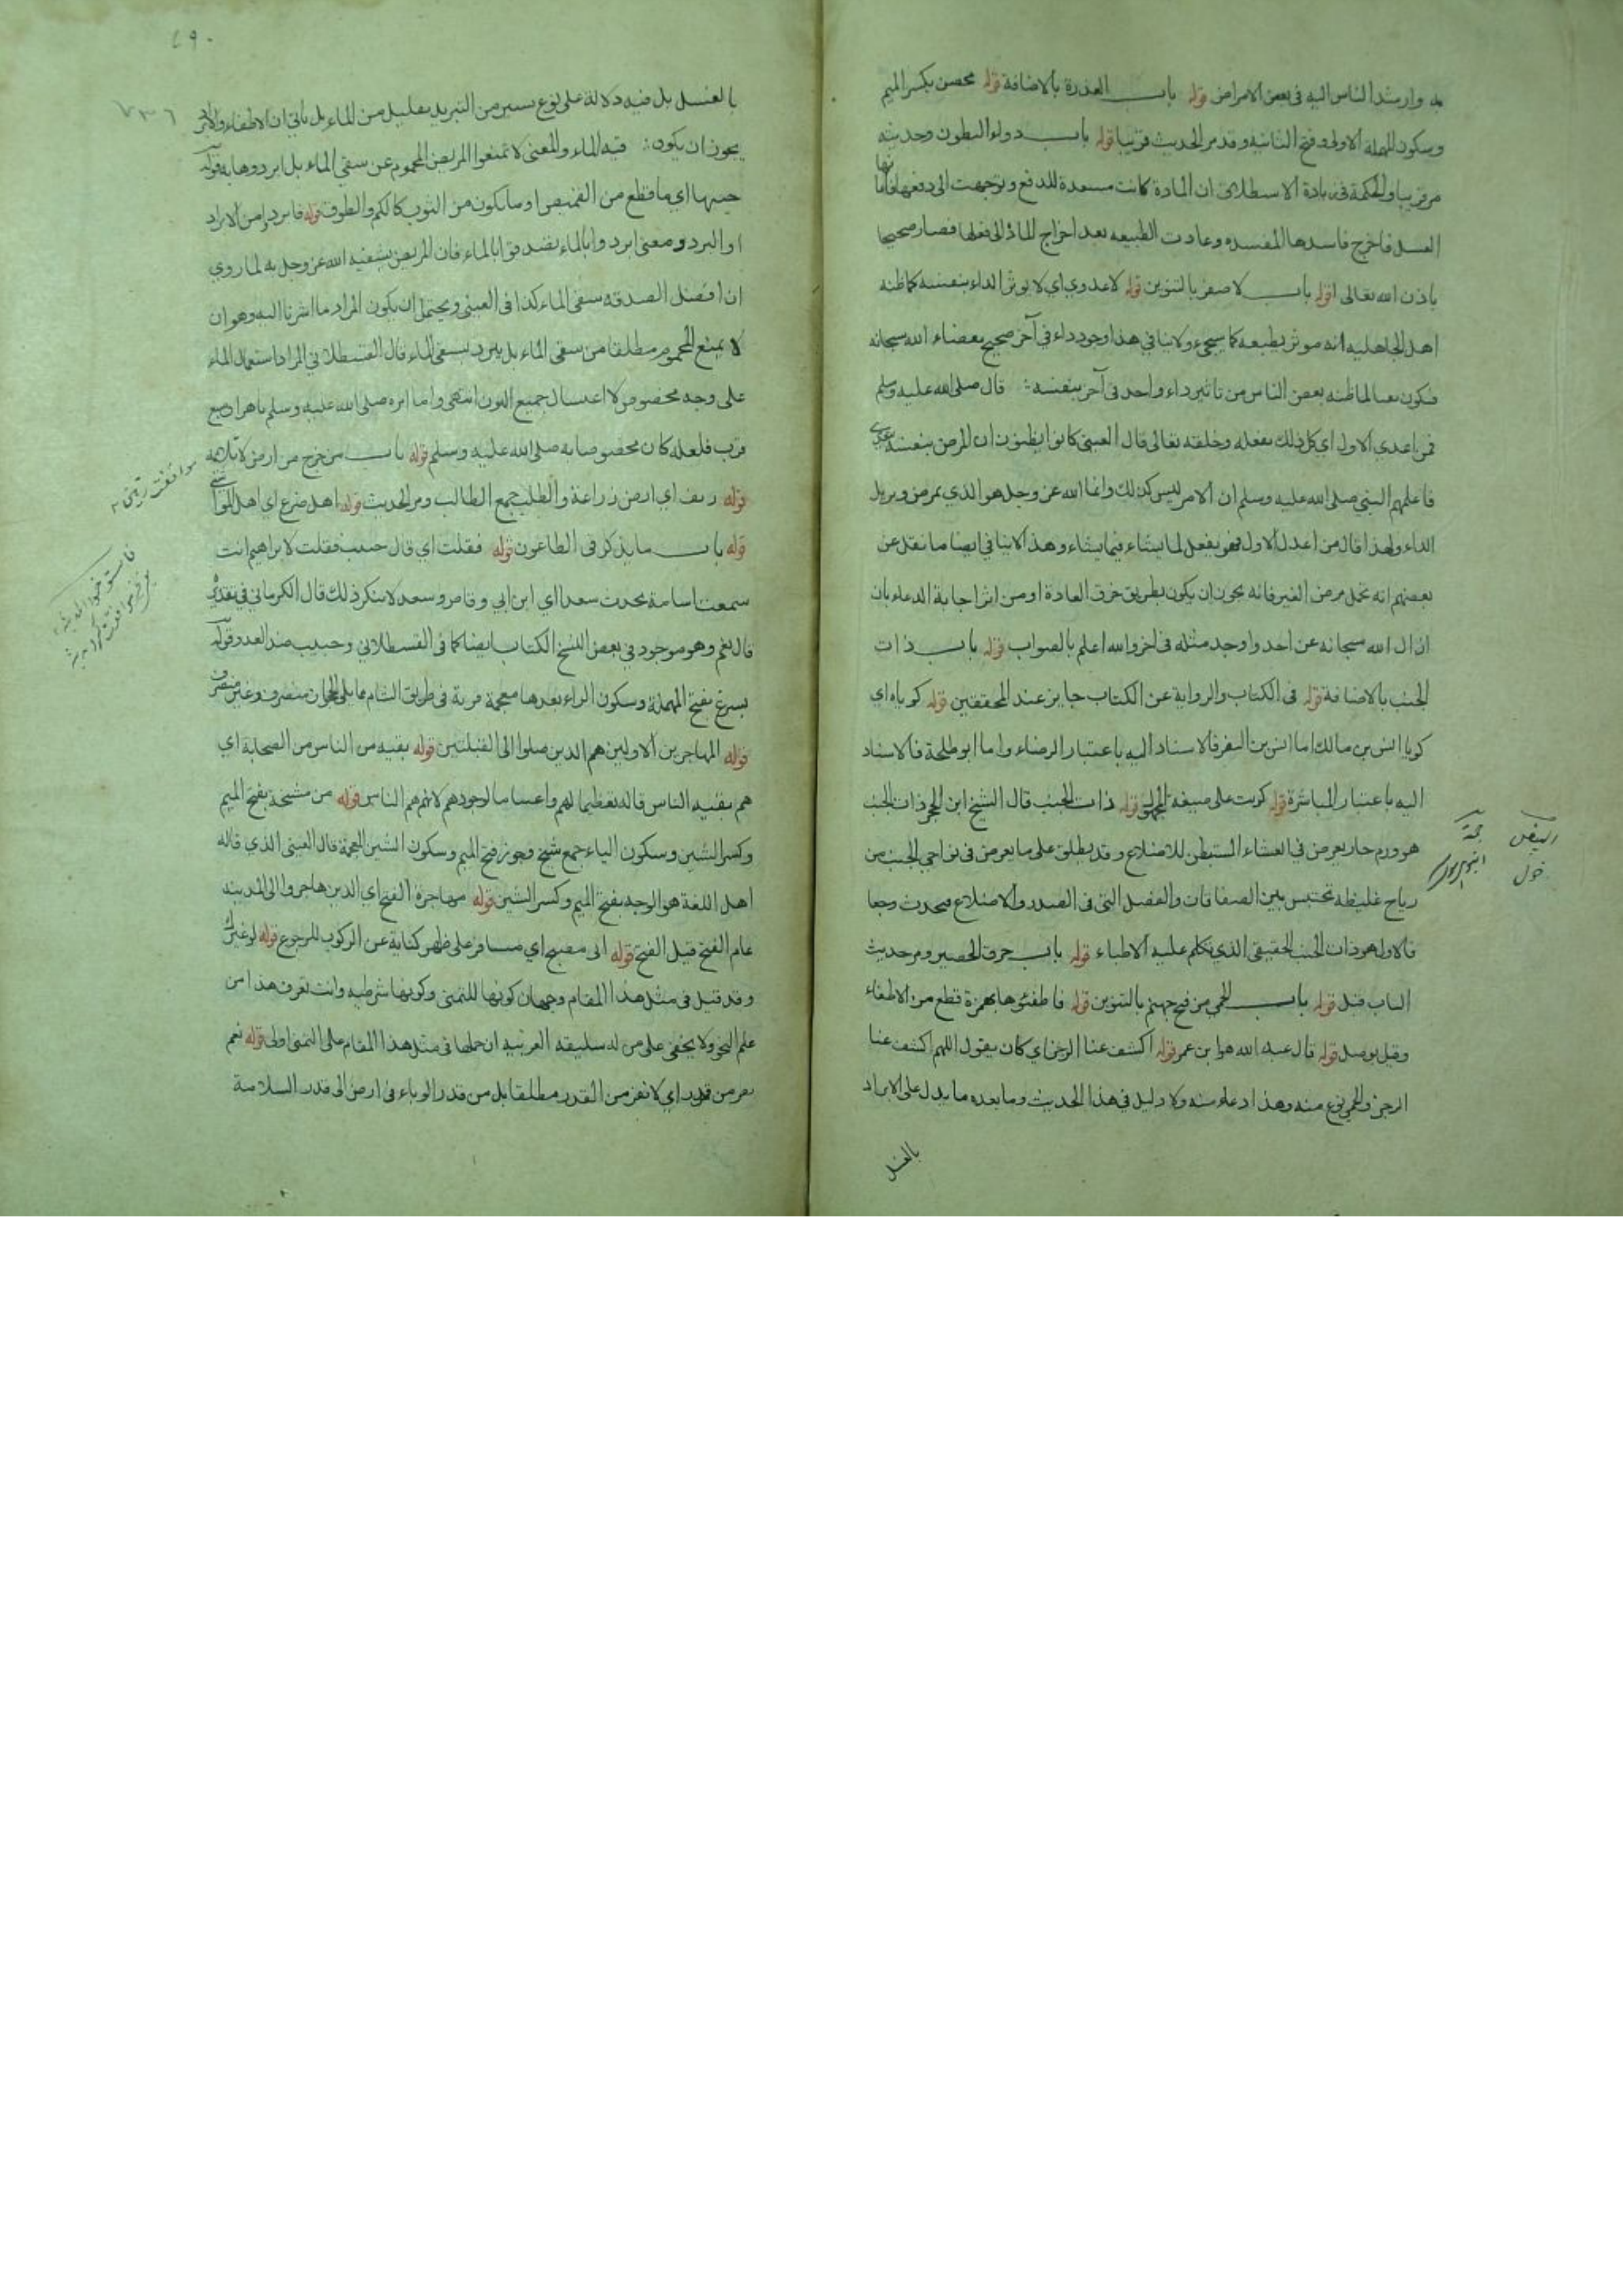 به وارشد الناس اليه في بعض الامراض قوله باب العذرة بالاضافة قوله محصن بكسر الميم
وسكون المهملة الاولى وفتح الثانية وقد مر الحديث قريبا قوله باب دواء المبطون وحديثه
مر قريبا والحكمة في زيادة الاستطلاق ان المادة كانت مستعدة للدفع وتوجهت الى دفعها
العسل فاخرج فاسدها المفسده وعادت الطبيعه بعد اخراج المادة الى فعلها فصار صحيحا
باذن الله تعالى قوله باب لا صفر بالتنوين قوله لا عدوى اي لا يوثر الداء بنفسه كما ظنه
اهل الجاهليه انه موثر بطبعه كما سيجيء ولا ينافي هذا وجود داء في آخر صحيح بقضاء الله سبحانه
فيكون لما ظنه بعض الناس من تاثير داء واحد في آخر بنفسه قال صلى الله عليه وسلم
فمن اعدى الاول اي كل ذلك بفعله وخلقه تعالى قال العيني كانوا يظنون ان المرض بنفسه يعدي
فاعلمهم النبي صلى الله عليه وسلم ان الامر ليس كذلك وانما الله عز وجل هو الذي يمرض ويزيل
الداء ولهذا قال من اعدى الاول فهو يفعل لما يشاء فيما يشاء وهذا لا ينافي ايضا ما نقل عن
بعضهم انه تحمل مرض الغير فانه يجوز ان يكون بطريق خرق العادة او من اثر اجابة الدعاء بان
ازال الله سبحانه عن احد واوجد مثله في آخر والله اعلم بالصواب قوله باب ذات
الجنب بالاضافة قوله في الكتاب والرواية عن الكتاب جايز عند المحققين قوله كوياه اي
كويا انس بن مالك اما انس بن النضر فالاسناد اليه باعتبار الرضاء واما ابو طلحة فالاسناد
اليه باعتبار المباشرة قوله كويت على صيغة المجهول قوله ذات الجنب قال الشيخ ابن الحجر ذات الجنب
هو ورم حار يعرض في الغشاء المستبطن للاضلاع وقد يطلق على ما يعرض في نواحي الجنب من
رياح غليظة تحتبس بين الصفاقات والعضل التي في الصدر والاضلاع فيحدث وجعا
فالاول هو ذات الجنب الحقيقي الذي تكلم عليه الاطباء قوله باب حرق الحصير ومر حديث
الباب قبل قوله باب الحمى من فيح جهنم بالتنوين قوله فاطفئوها بهمزة قطع من الاطفاء
وقيل بوصل قوله قال عبد الله هو ابن عمر قوله اكشف عنا الرجز اي كان يقول اللهم اكشف عنا
الرجز والحمى نوع منه وهذا دعاء منه ولا دليل في هذا الحديث وما بعده ما يدل على الابراد
بالغسل
٤٩٠
٧٣٦
بالغسل بل فيه دلالة على نوع يسير من التبريد بقليل من الماء بل ياتي ان الاطفاء
يجوز ان يكون فيه الماء والمعنى لا تمنعوا المريض المحموم عن سقي الماء بل ابردوها به قوله
جيبها اي ما قطع من القميص او ما يكون من الثوب كالكم والطوق قوله فابردوا من الابراد
او البرد ومعنى ابردوا بالماء تصدقوا بالماء فان المريض يشفيه الله عز وجل به لما روي
ان افضل الصدقه سقي الماء كذا في العيني ويحتمل ان يكون المراد ما اشرنا اليه وهو ان
لا يمنع المحموم مطلقا من سقي الماء بل يبرد بسقي الماء قال القسطلاني المراد استعمال الماء
على وجه مخصوص لا اغتسال جميع البدن انتهى واما امره صلى الله عليه وسلم باهراق سبع
قرب فلعله كان مخصوصا به صلى الله عليه وسلم قوله باب من خرج من ارض لا تلايمه
قوله ريف اي ارض زراعة والطلب جمع الطالب ومر الحديث قوله اهل ضرع اي اهل المواشي
قوله باب ما يذكر في الطاعون قوله فقلت اي قال حبيب فقلت لابراهيم انت
سمعت اسامة يحدث سعدا اي ابن ابي وقاص وسعد لا ينكر ذلك قال الكرماني في تقدير
قال نعم وهو موجود في بعض النسخ الكتاب ايضا كما في القسطلاني وحبيب ضد العدو قوله
بسرغ بفتح المهملة وسكون الراء بعدها معجمة قرية في طريق الشام مما يلي الحجاز منصرف وغير منصرف
قوله المهاجرين الاولين هم الذين صلوا الى القبلتين قوله بقية من الناس من الصحابة اي
هم بقية الناس قاله تعظيما لهم لوجودهم لانهم هم الناس قوله من مشيخة بفتح الميم
وكسر الشين وسكون الياء جمع شيخ وجوز فتح الميم وسكون الشين المعجمة قال العيني الذي قاله
اهل اللغة هو الوجه بفتح الميم وكسر الشين قوله مهاجرة الفتح اي الذين هاجروا الى المدينه
عام الفتح قبل الفتح قوله اني مصبح اي مسافر على ظهر كناية عن الركوب للرجوع قوله لو غيرك
وقد قيل في مثل هذا المقام وجهان كونها للتمني وكونها شرطيه وانت تعرف هذا من
علم النحو ولا يخفى على من له سليقه العربيه ان حملها في مثل هذا المقام على التمني اولى قوله نعم
نفر من قدر اي لا نفر من القدر مطلقا بل من قدر الوباء في ارض الى قدر السلامة